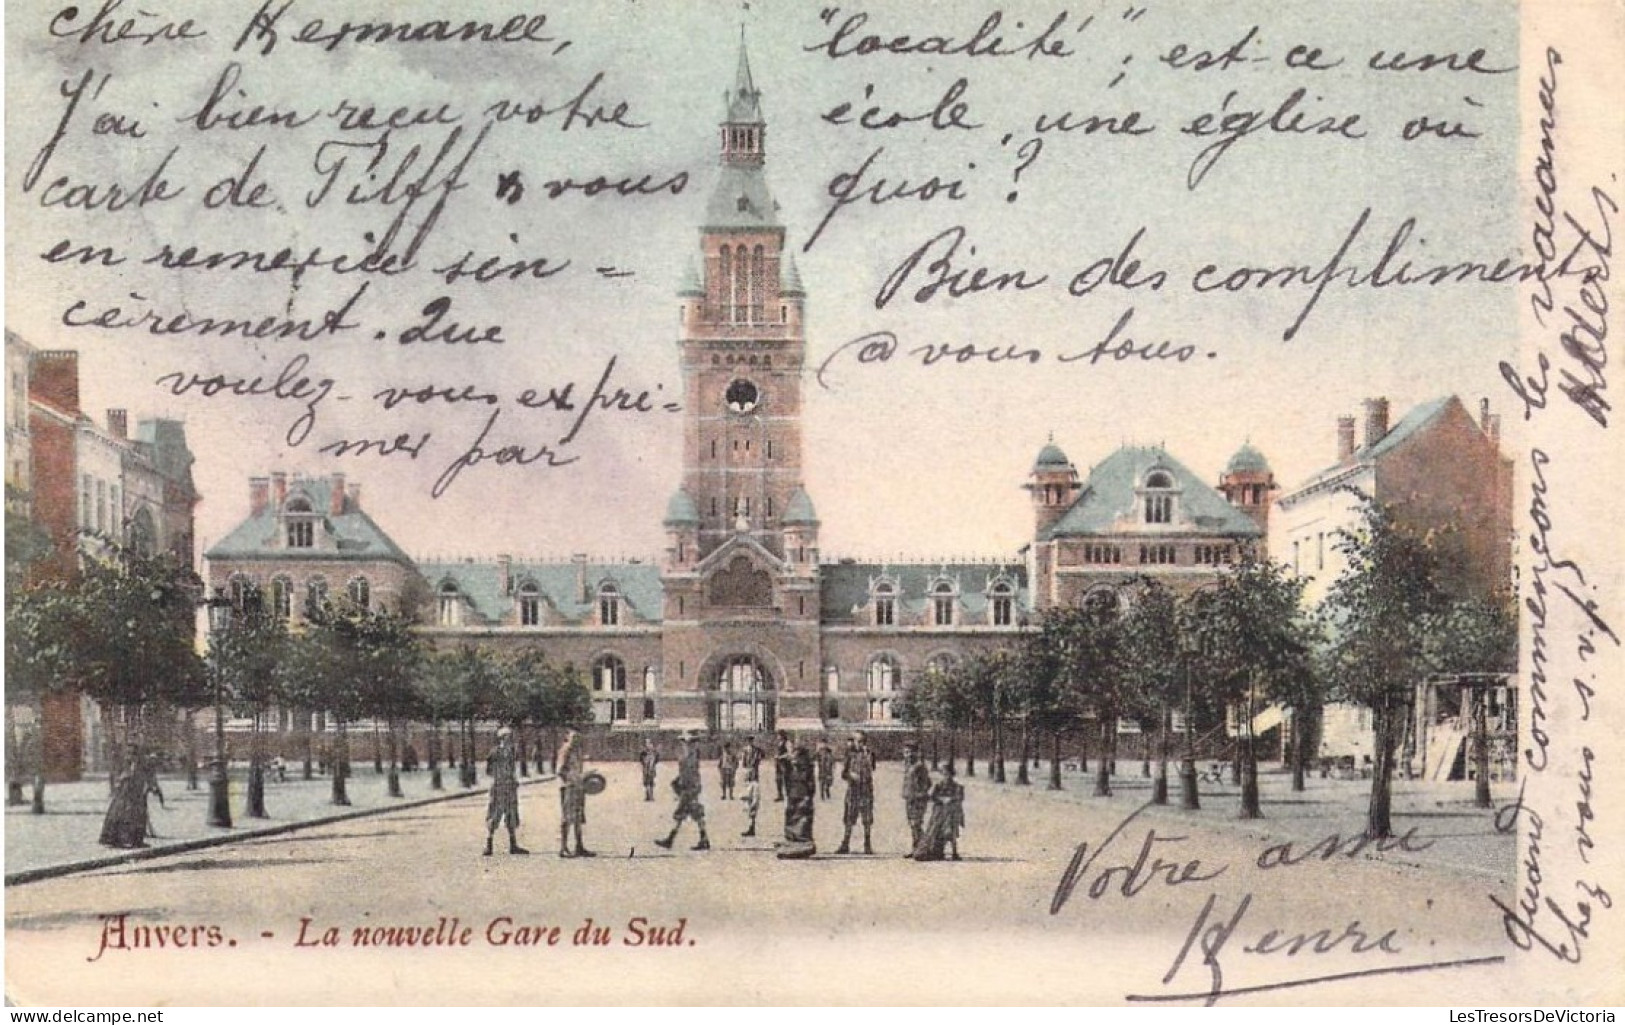 chère Hermance,
J'ai bien reçu votre
carte de Tilff & vous
en remercie sin =
cèirement. Que
voulez-vous expri =
mer par
"localité"; est-ce une
école, une église où
quoi?
Bien des compliments
@ vous tous.
Votre ami
Henri.
Quand commençons les vacances
chez vous s.v.p.
Anvers. - La nouvelle Gare du Sud.
delcampe.net
LesTresorsDeVictoria